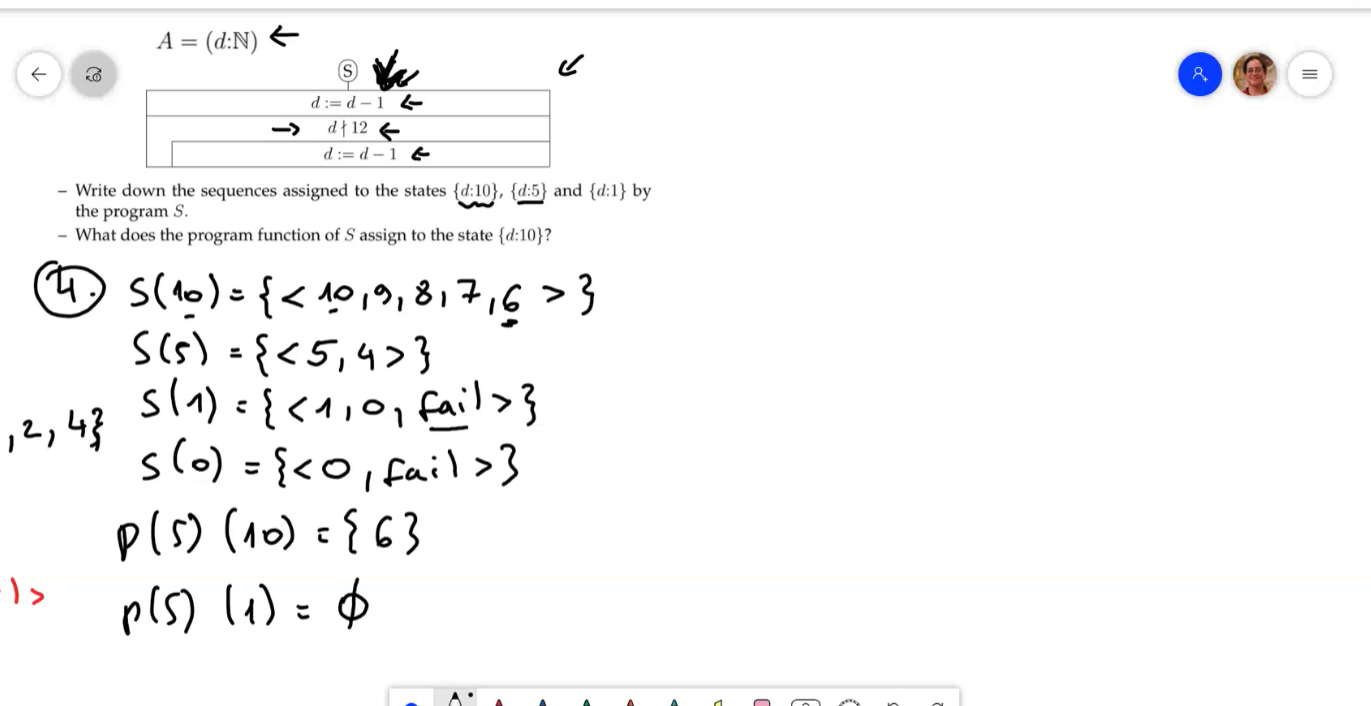 A = (d:ℕ) ←
S
d := d − 1 ←
→ d ∤ 12 ←
d := d − 1 ←
– Write down the sequences assigned to the states {d:10}, {d:5} and {d:1} by
the program S.
– What does the program function of S assign to the state {d:10}?
4. S(10) = {< 10, 9, 8, 7, 6 >}
S(5) = {< 5, 4 >}
S(1) = {< 1, 0, fail >}
, 2, 4}
S(0) = {< 0, fail >}
p(S) (10) = {6}
p(S) (1) = ∅